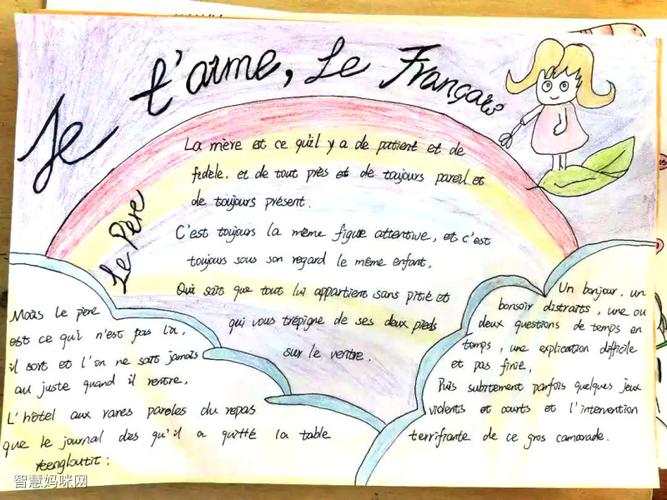 Je t'aime, Le Français
Le Père
La mère est ce qu'il y a de patient et de
fidèle. et de tout près et de toujours pareil et
de toujours présent.
C'est toujours la même figure attentive, et c'est
toujours sous son regard le même enfant.
Qui sait que tout lui appartient sans pitié et
qui vous trépigne de ses deux pieds
sur le ventre.
Mais le père
est ce qui n'est pas là.
il sort et l'on ne sait jamais
au juste quand il rentre.
L'hôtel aux rares paroles du repas
que le journal dès qu'il a quitté la table
réengloutit:
Un bonjour, un
bonsoir distraits, une ou
deux questions de temps en
temps, une explication difficile
et pas finie,
Puis subitement parfois quelques jeux
violents et courts et l'intervention
terrifiante de ce gros camarade.
智慧妈咪网